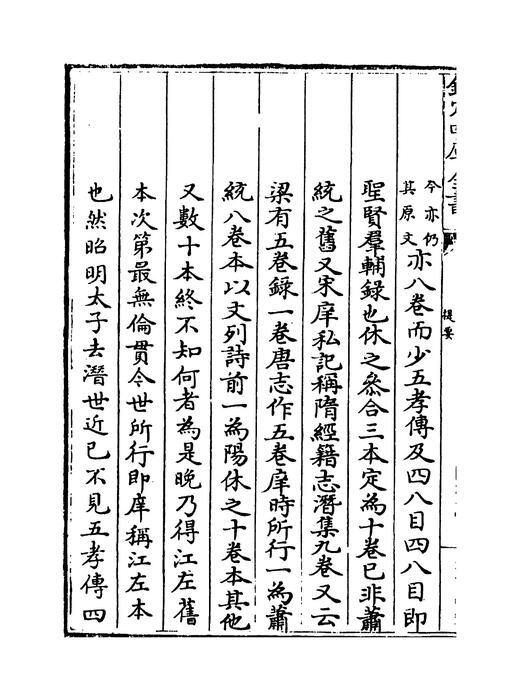 欽定四庫全書
提要
今亦仍其原文亦八卷而少五孝傳及四八目四八目即
聖賢羣輔録也休之叅合三本定為十卷已非蕭
統之舊又宋庠私記稱隋經籍志潛集九卷又云
梁有五卷録一卷唐志作五卷庠時所行一為蕭
統八卷本以文列詩前一為陽休之十卷本其他
又數十本終不知何者為是晚乃得江左舊
本次第最無倫貫今世所行即庠稱江左本
也然昭明太子去潛世近已不見五孝傳四